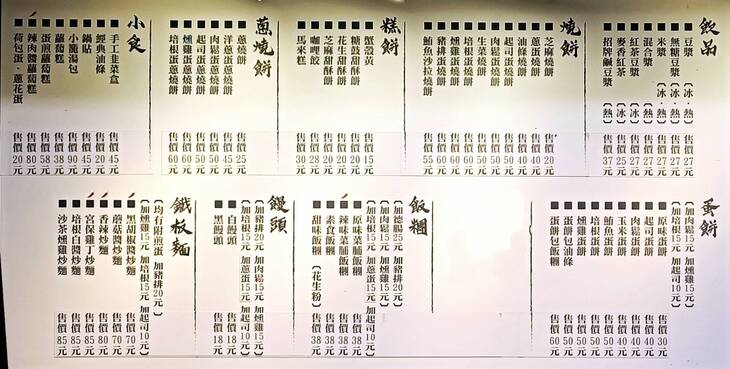 飲品
■豆漿（冰·熱）售價27元
■無糖豆漿（冰·熱）售價27元
■米漿（冰·熱）售價27元
■混合漿（熱）售價27元
■紅茶豆漿（冰）售價27元
■麥香紅茶（冰）售價25元
■招牌鹹豆漿（熱）售價37元
燒餅
■芝麻燒餅 售價20元
■蛋燒餅 售價40元
■油條燒餅 售價40元
■起司蛋燒餅 售價50元
■肉鬆蛋燒餅 售價50元
■生菜蛋燒餅 售價50元
■培根蛋燒餅 售價60元
■燻雞蛋燒餅 售價60元
■豬排蛋燒餅 售價60元
■鮪魚沙拉燒餅 售價55元
糕餅
■蟹殼黃 售價15元
■糖鼓甜酥餅 售價20元
■花生甜酥餅 售價20元
■芝麻甜酥餅 售價20元
■咖哩餃 售價28元
■馬來糕 售價30元
蔥燒餅
■蔥燒餅 售價25元
■洋蔥蛋蔥燒餅 售價45元
■肉鬆蛋蔥燒餅 售價50元
■起司蛋蔥燒餅 售價50元
■燻雞蛋蔥燒餅 售價60元
■培根蛋蔥燒餅 售價60元
小食
■手工韭菜盒 售價45元
■經典油條 售價20元
■鍋貼 售價45元
■小籠湯包 售價90元
■蘿蔔糕 售價38元
■蛋煎蘿蔔糕 售價58元
■辣肉醬蘿蔔糕 售價80元
■荷包蛋·蔥花蛋 售價20元
蛋餅
〔加肉鬆15元 加燻雞15元〕
〔加培根15元 加起司10元〕
■原味蛋餅 售價30元
■起司蛋餅 售價40元
■肉鬆蛋餅 售價40元
■玉米蛋餅 售價40元
■鮪魚蛋餅 售價50元
■培根蛋餅 售價50元
■燻雞蛋餅 售價50元
■蛋餅包油條 售價50元
■蛋餅包飯糰 售價60元
飯糰
〔加德腸25元 加豬排20元〕
〔加肉鬆15元 加燻雞15元〕
〔加培根15元 加蔥蛋15元 加起司10元〕
■原味菜脯飯糰 售價38元
■辣味菜脯飯糰 售價38元
■素食飯糰 售價38元
■甜味飯糰（花生粉）售價38元
饅頭
〔加豬排20元 加肉鬆15元 加燻雞15元〕
〔加培根15元 加蔥蛋15元 加起司10元〕
■白饅頭 售價18元
■黑饅頭 售價18元
鐵板麵
〔均有附煎蛋 加豬排20元〕
〔加燻雞15元 加培根15元 加起司10元〕
■黑胡椒醬炒麵 售價70元
■蘑菇醬炒麵 售價70元
■香辣炒麵 售價80元
■宮保雞丁炒麵 售價85元
■培根白醬炒麵 售價85元
■沙茶燻雞炒麵 售價85元